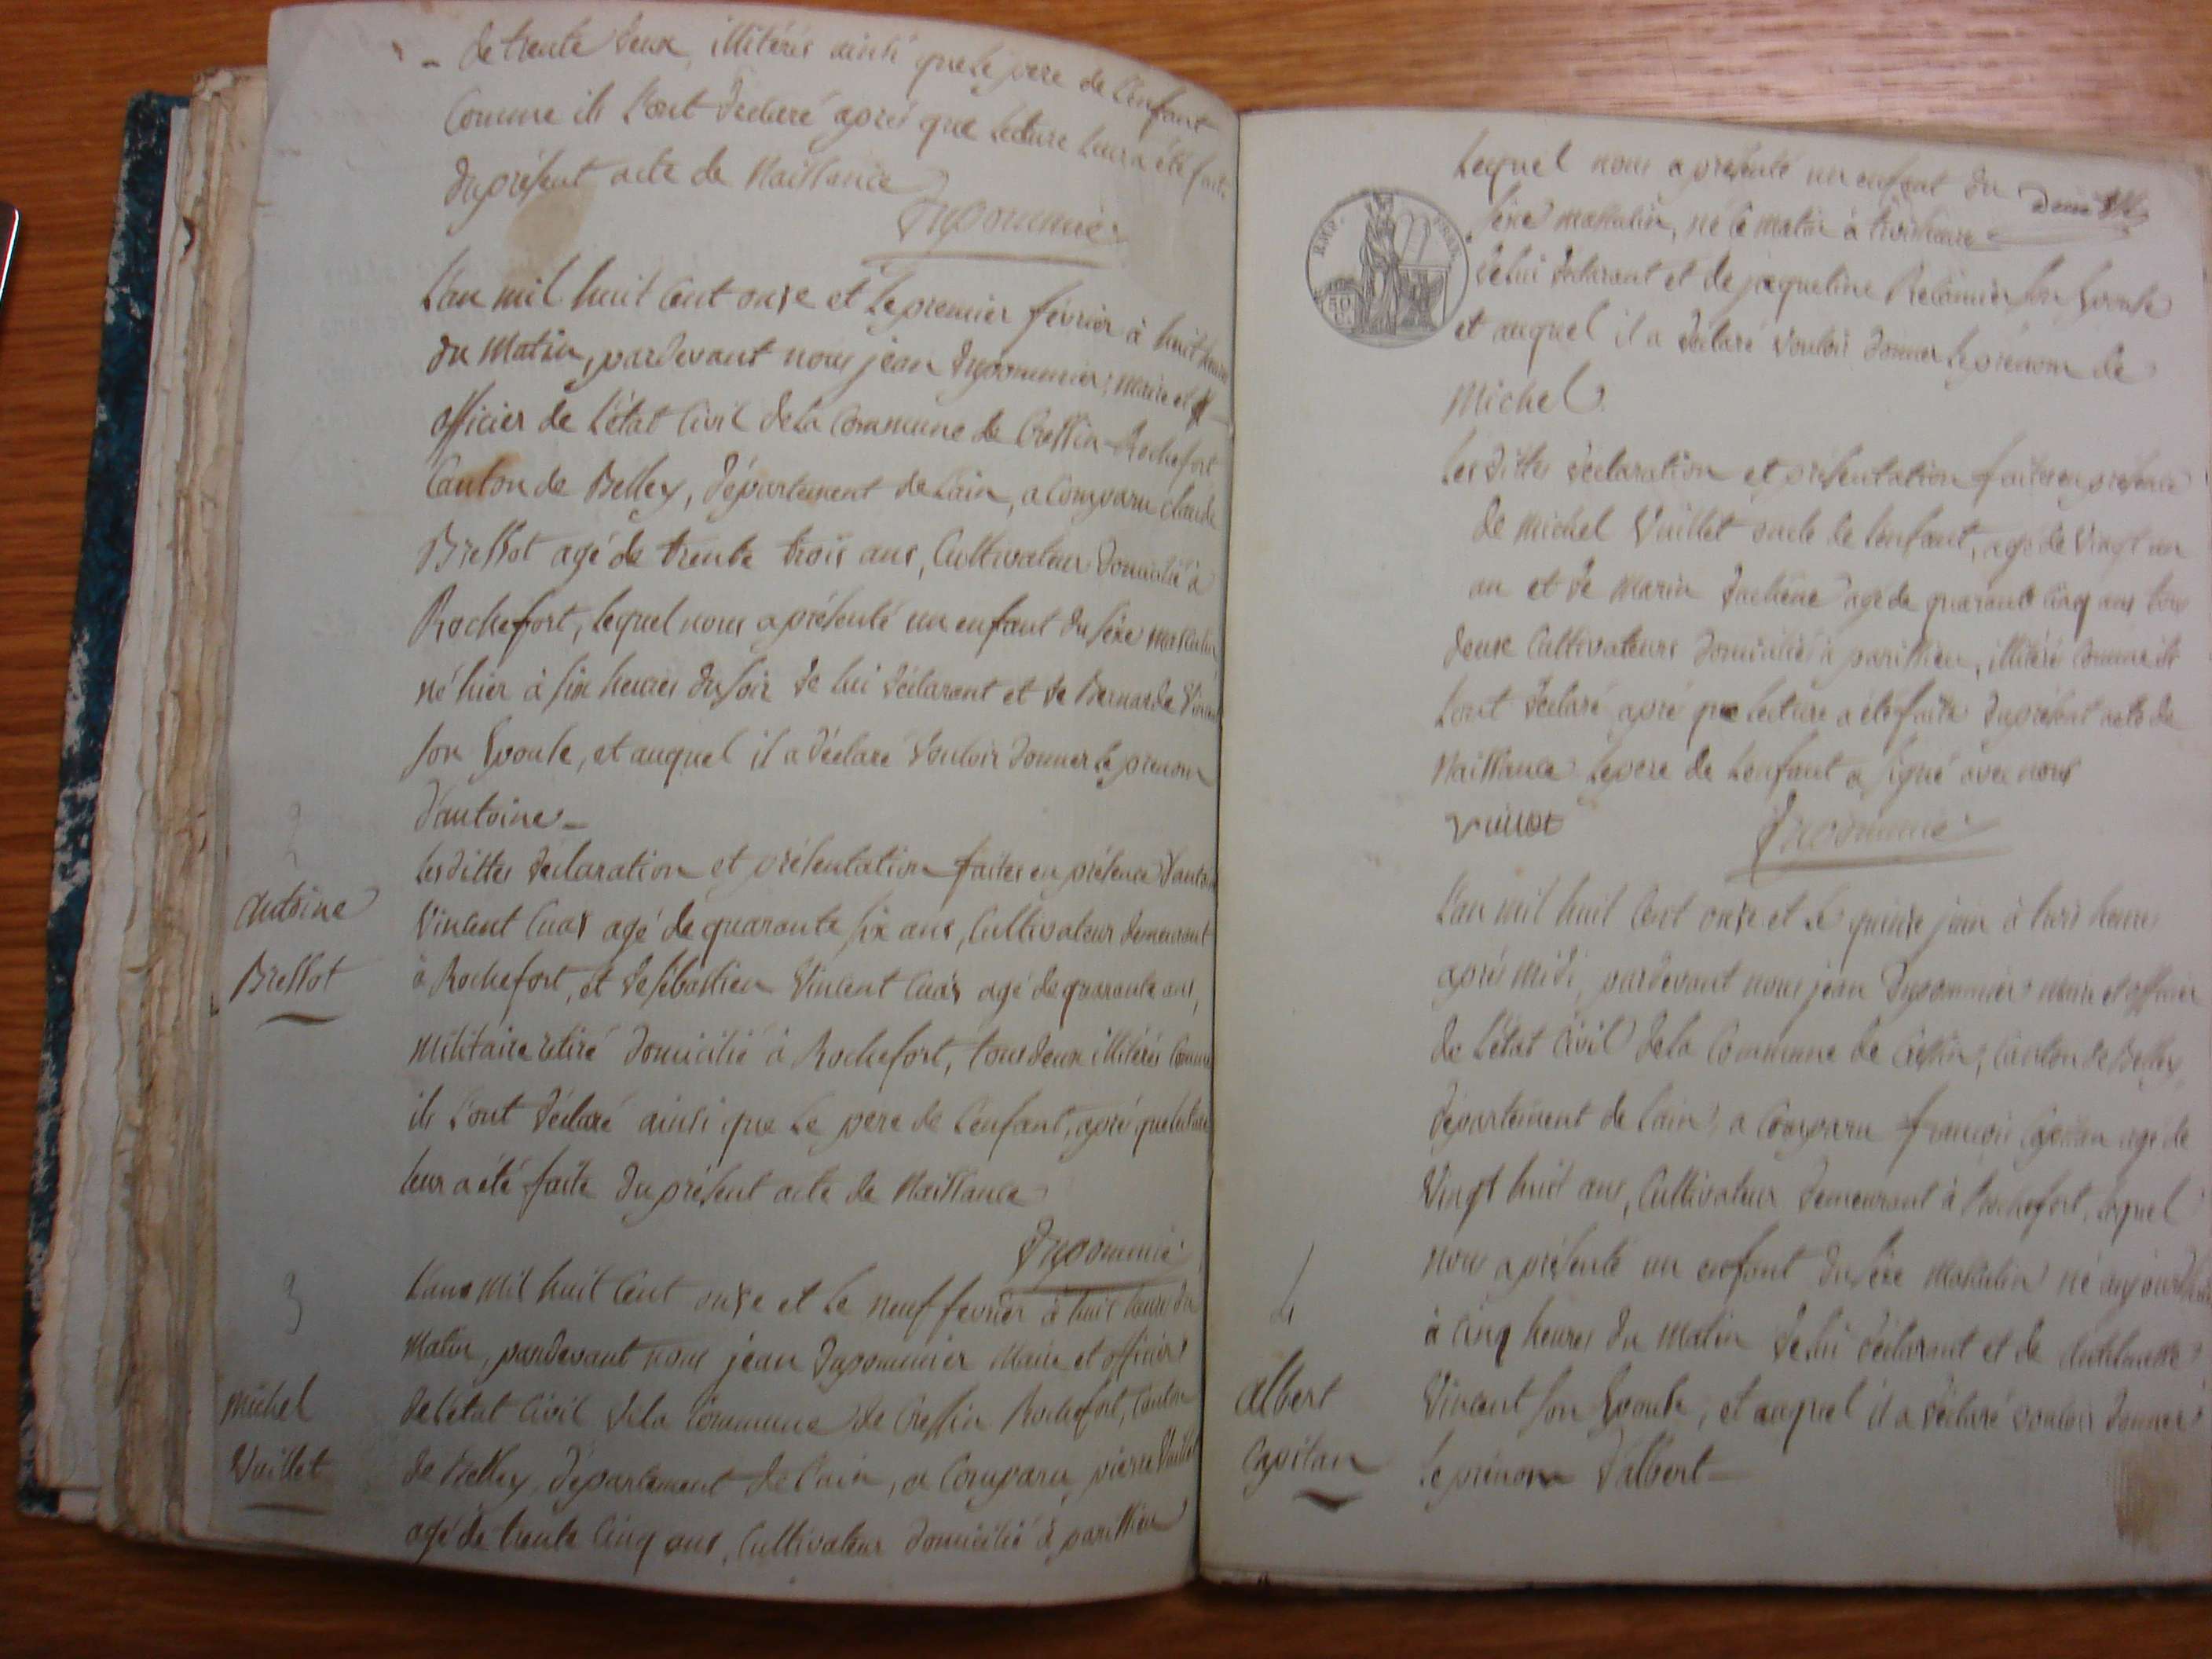 de trente deux, illitérés ainsi que le pere de l'enfant
Comme ils l'ont déclaré après que lecture leur a été faite
du présent acte de Naissance
Dupommier
L'an mil huit cent onze et le premier février à huit heures
du Matin, pardevant nous jean Dupommier, maire et
officier de l'état Civil de la Commune de Cressin-Rochefort
Canton de Belley, département de l'ain, a Comparu claude
Bressot agé de trente trois ans, Cultivateur domicilié à
Rochefort, lequel nous a présenté un enfant du sexe masculin
né hier à six heures du soir de lui déclarant et de Bernarde Vincent
son Epouse, et auquel il a déclaré vouloir donner le prénom
d'antoine
2
Les dittes déclaration et présentation faites en présence d'antoine
antoine
Vincent Cuaz agé de quarante six ans, Cultivateur demeurant
Bressot
à Rochefort, et de sébastien Vincent Cuaz agé de quarante ans,
Militaire retiré domicilié à Rochefort, tous deux illitérés Comme
ils l'ont déclaré ainsi que le pere de l'enfant, après que lecture
leur a été faite du présent acte de Naissance
Dupommier
3
L'an mil huit Cent onze et le neuf février à huit heures du
Matin, pardevant nous jean Dupommier Maire et officier
Michel
de l'état Civil de la Commune de Cressin Rochefort, Canton
Vuillet
de Belley, département de l'ain, a Comparu pierre Vuillet
agé de trente Cinq ans, Cultivateur domicilié à parissieu
Lequel nous a présenté un enfant du
sexe masculin, né ce matin à
EMP. FRAN.
de lui déclarant et de jaqueline son Epouse
50 C.
et auquel il a déclaré vouloir donner le prénom de
Michel
Les dittes déclaration et présentation faites en présence
de Michel Vuillet oncle de l'enfant, agé de vingt un
an et de Marin agé de quarante Cinq ans tous
deux Cultivateurs domiciliés à parissieu, illitérés Comme ils
l'ont déclaré après que lecture a été faite du présent acte de
Naissance le pere de l'enfant a signé avec nous
Vuillet Dupommier
L'an mil huit Cent onze et le quinze juin à trois heures
après midi, pardevant nous jean Dupommier maire et officier
de l'état Civil de la Commune de Cressin, Canton de Belley
département de l'ain, a Comparu françois Capitan agé de
Vingt huit ans, Cultivateur demeurant à Rochefort, lequel
nous a présenté un enfant du sexe masculin né aujourd'hui
4
à Cinq heures du Matin de lui déclarant et de
albert
Vincent son Epouse, et auquel il a déclaré vouloir donner
Capitan
le prénom d'albert